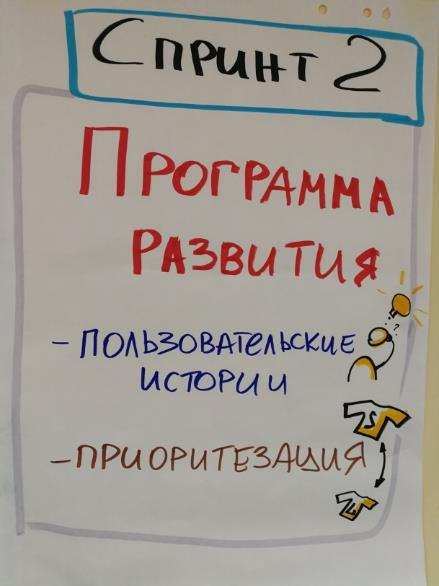 Спринт 2
Программа
развития
- пользовательские
истории
- приоритезация